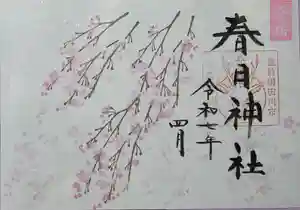 春日神社
令和七年
四月